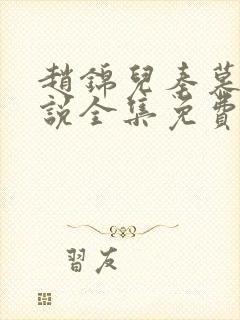 趙錦兒秦慕
說全集免費
習友